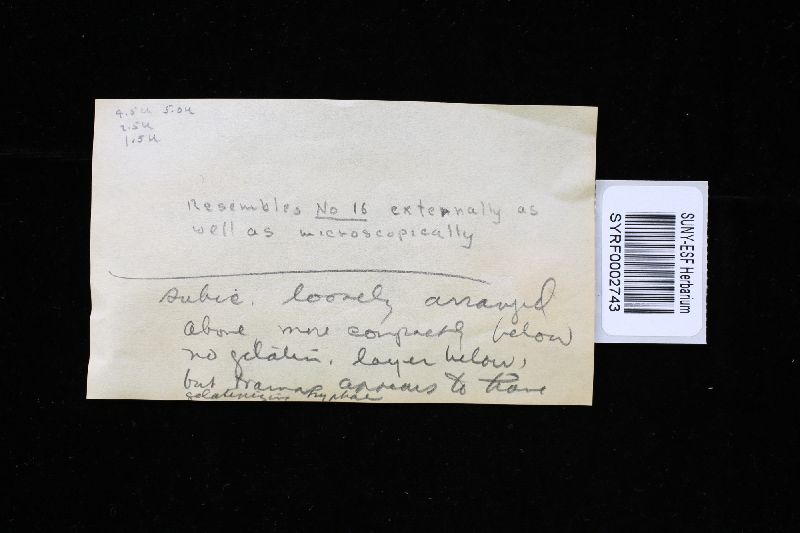 4.5u 5.0u
2.5u
1.5u
Resembles No 16 externally as
well as microscopically
subic. loosely arranged
above more compactly below
no gelatin. layer below,
but trama appears to have
gelatinizing hyphae
SUNY-ESF Herbarium
SYRF0002743